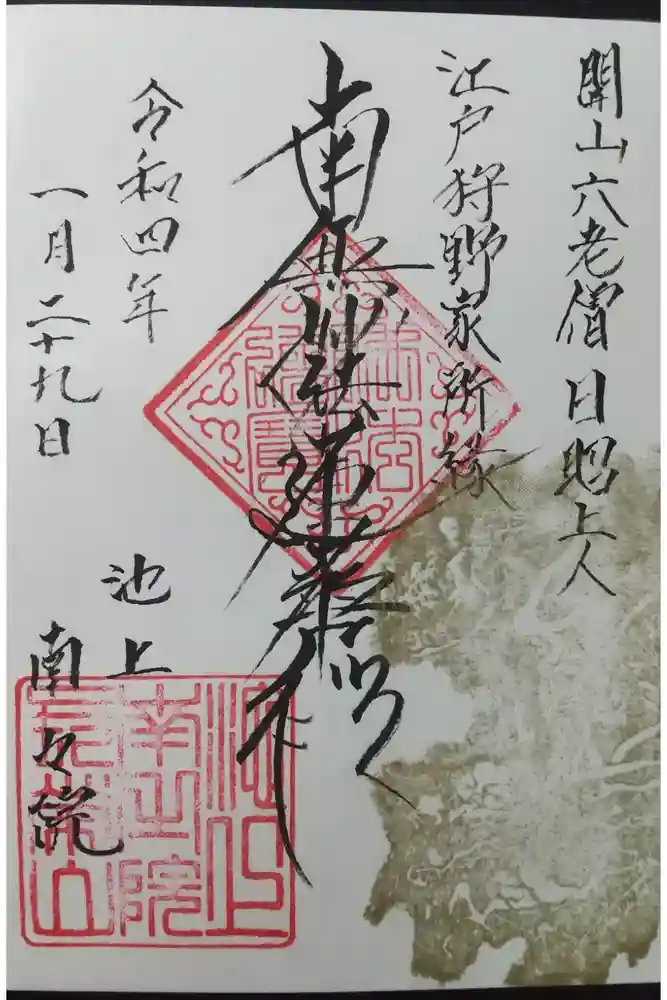 開山六老僧 日朗上人
江戸狩野家所縁
南無妙法蓮華経
令和四年
一月二十九日
池上
南々院
池上
南之院